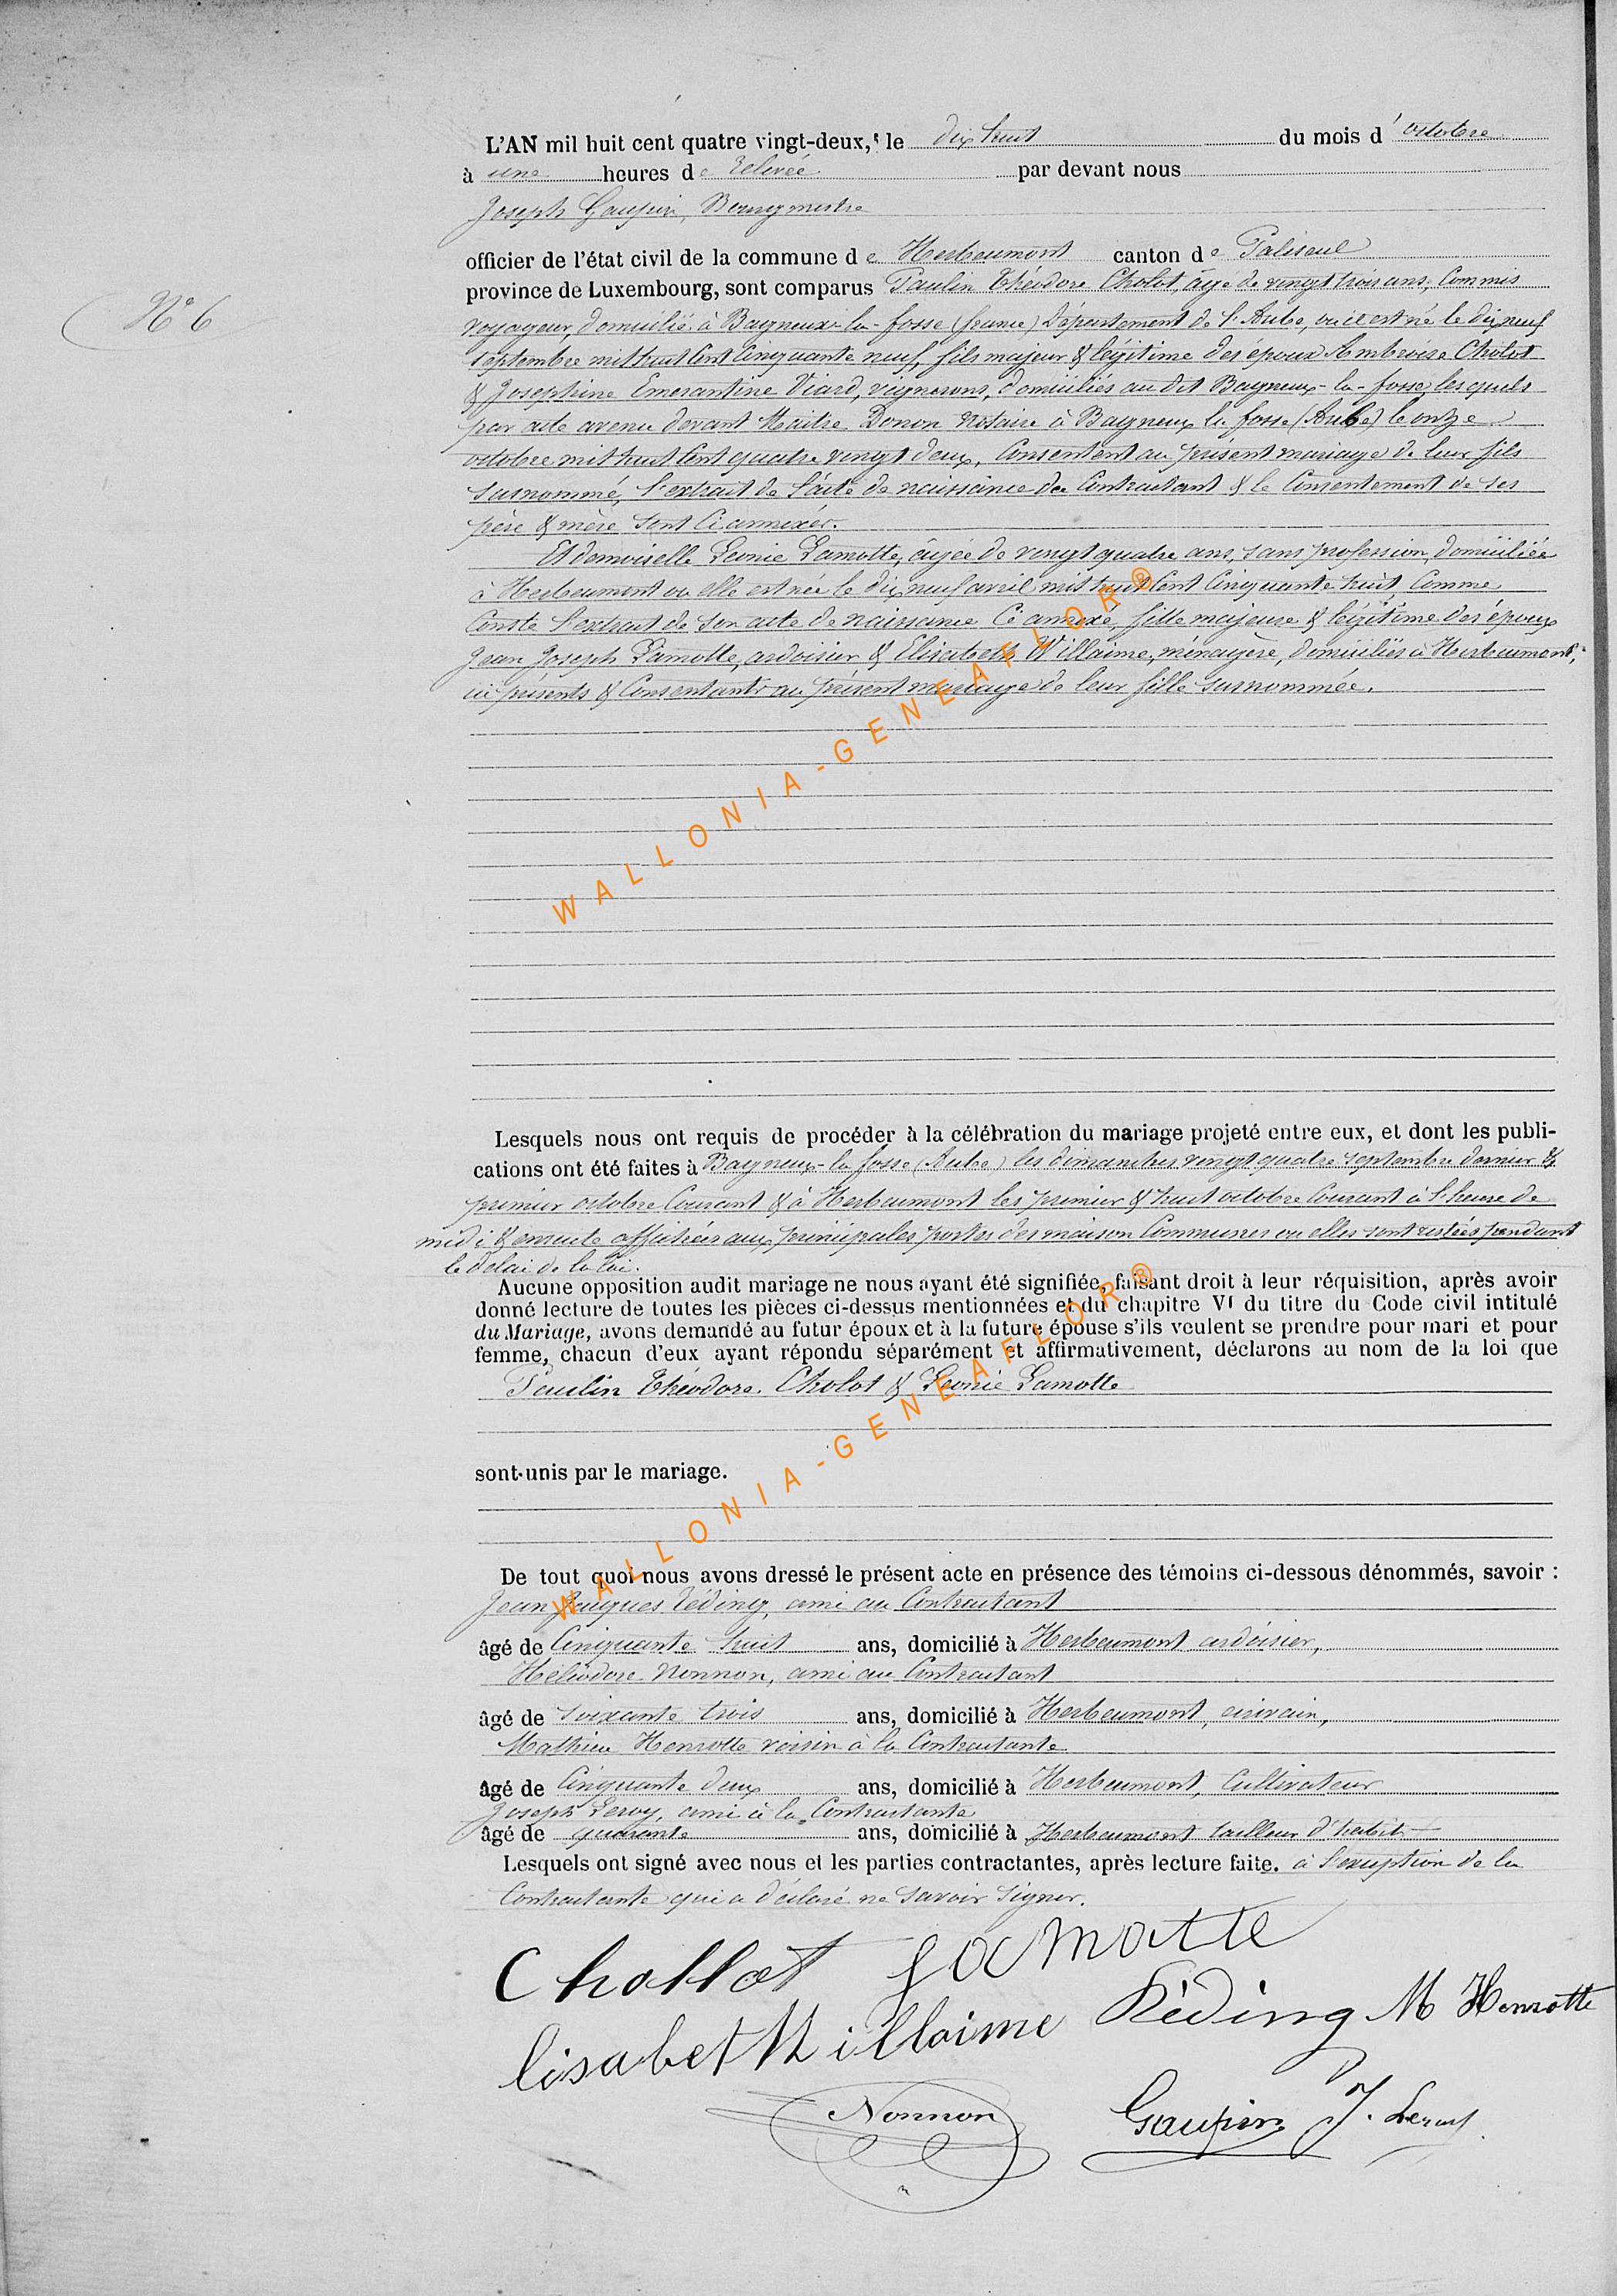 N° 6
L'AN mil huit cent quatre vingt-deux, le dix huit du mois d' octobre
à une heures de relevée par devant nous
Joseph Gaupin, Bourgmestre
officier de l'état civil de la commune de Herbeumont canton de Paliseul
province de Luxembourg, sont comparus Paulin Théodore Cholot, âgé de vingt trois ans, Commis
voyageur, domicilié à Bagneux-la-fosse (france) Département de l'Aube, où il est né le dix neuf
septembre mil huit Cent Cinquante neuf, fils majeur & légitime des époux Ambroise Cholot
& Josephine Emerantine Viard, vignerons, domiciliés au dit Bagneux-la-fosse, lesquels
par acte avenu devant Maitre Donon Notaire à Bagneux la fosse (Aube) le onze
octobre mil huit Cent quatre vingt deux, Consentent au présent mariage de leur fils
susnommé, l'extrait de l'acte de naissance du Contractant & le Consentement de ses
père & mère sont Ci annexés.
Et demoiselle Leonie Lamotte, âgée de vingt quatre ans, sans profession, domiciliée
à Herbeumont ou elle est née le dix neuf avril mil huit Cent Cinquante huit, Comme
Conste l'extrait de son acte de naissance Ci annexé, fille majeure & légitime des époux
Jean Joseph Lamotte, ardoisier & Elisabeth Willaime, ménagère, domiciliés à Herbeumont,
ici présents & Consentants au présent mariage de leur fille susnommée.
WALLONIA-GENEAFLOR®
Lesquels nous ont requis de procéder à la célébration du mariage projeté entre eux, et dont les publi-
cations ont été faites à Bagneux-la fosse (Aube) les dimanches vingt quatre septembre dernier &
premier octobre Courant & à Herbeumont les premier & huit octobre Courant à l'heure de
midi & ensuite affichées aux principales portes des maison Communes ou elles sont restées pendant
le délai de la loi.
Aucune opposition audit mariage ne nous ayant été signifiée, faisant droit à leur réquisition, après avoir
donné lecture de toutes les pièces ci-dessus mentionnées et du chapitre VI du titre du Code civil intitulé
du Mariage, avons demandé au futur époux et à la future épouse s'ils veulent se prendre pour mari et pour
femme, chacun d'eux ayant répondu séparément et affirmativement, déclarons au nom de la loi que
Paulin Théodore Cholot & Leonie Lamotte
sont unis par le mariage.
WALLONIA-GENEAFLOR®
De tout quoi nous avons dressé le présent acte en présence des témoins ci-dessous dénommés, savoir :
Jean Jacques Féding, ami au Contractant
âgé de Cinquante huit ans, domicilié à Herbeumont ardoisier,
Héliodore Nonnon, ami au Contractant
âgé de soixante trois ans, domicilié à Herbeumont, écrivain,
Mathieu Henrotte voisin à la Contractante
âgé de Cinquante deux ans, domicilié à Herbeumont, Cultivateur
Joseph Leroy, ami à la Contractante
âgé de quarante ans, domicilié à Herbeumont tailleur d'habit
Lesquels ont signé avec nous et les parties contractantes, après lecture faite. à l'exception de la
Contractante qui a déclaré ne savoir signer.
Chollot Lamotte
lisabet Willaime Féding M Henrotte
Nonnon Gaupin J. Leroy